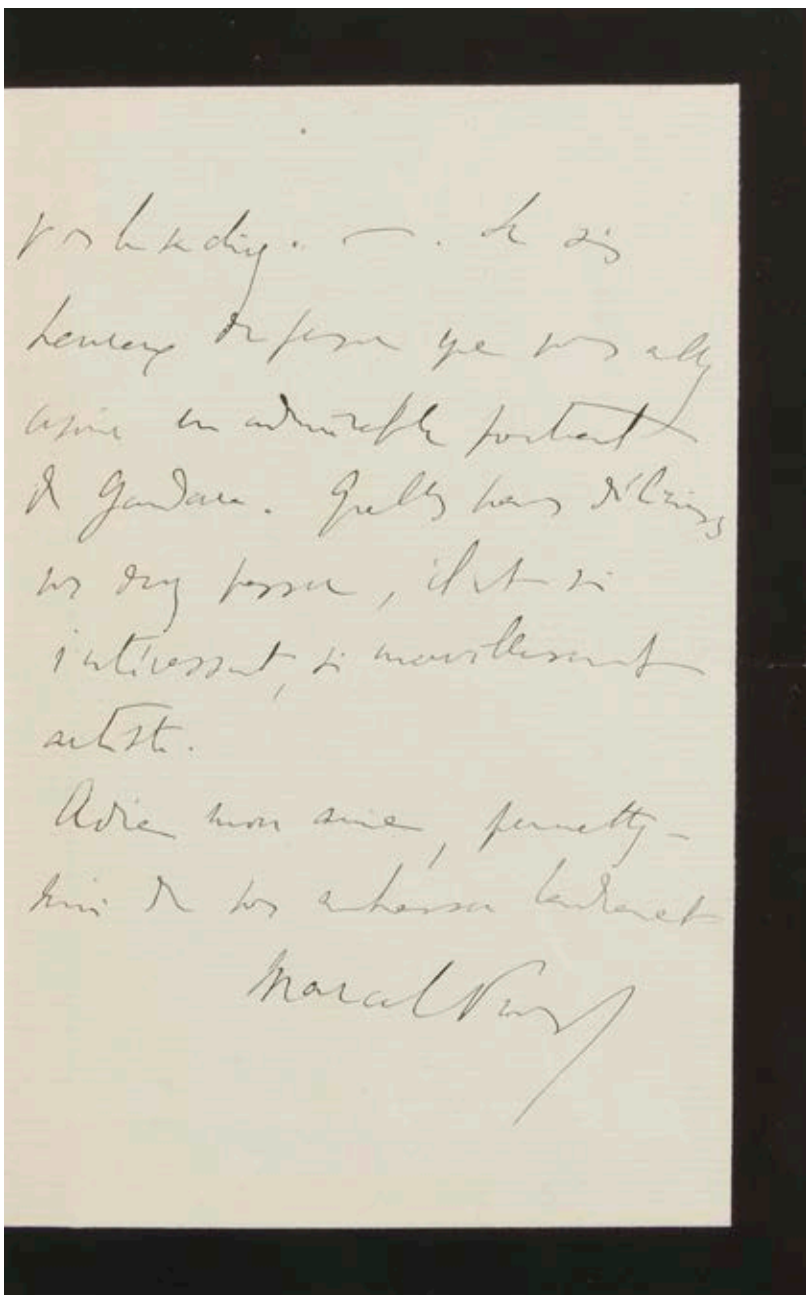 . — . Je suis
heureux de penser que vous allez
avoir un admirable portrait
de Gandara. Quelles heures délicieuses
vous devez passer, il est si
intéressant, si merveilleusement
artiste.
Adieu mon amie, permettez-
moi de vous embrasser tendrement
Marcel Proust